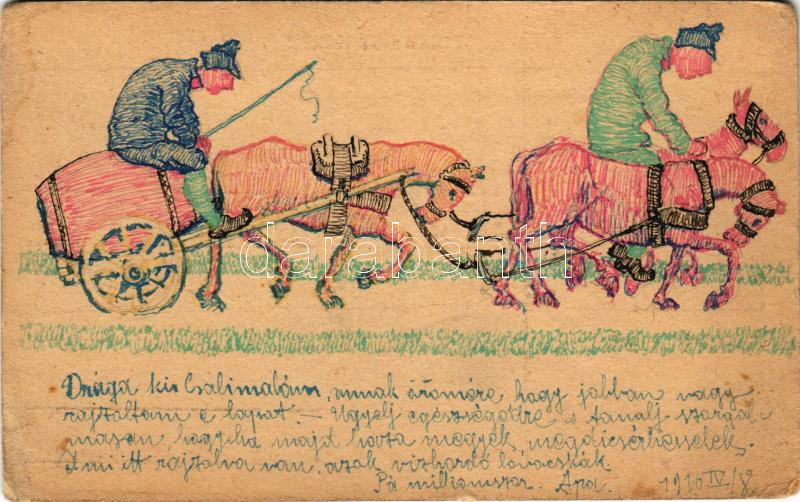 darabanth
Drága kis Csalimalám, annak örömére hogy jobban vagy
rajzoltam e lapot. — Ügyelj egészségedre s tanulj szorgal-
masan hogy ha majd haza megyek, megdicsérhesselek.
Ami itt rajzolva van, azok vizhordó lovacskák
Pá milliomszor. Apa. 1916 IV/8